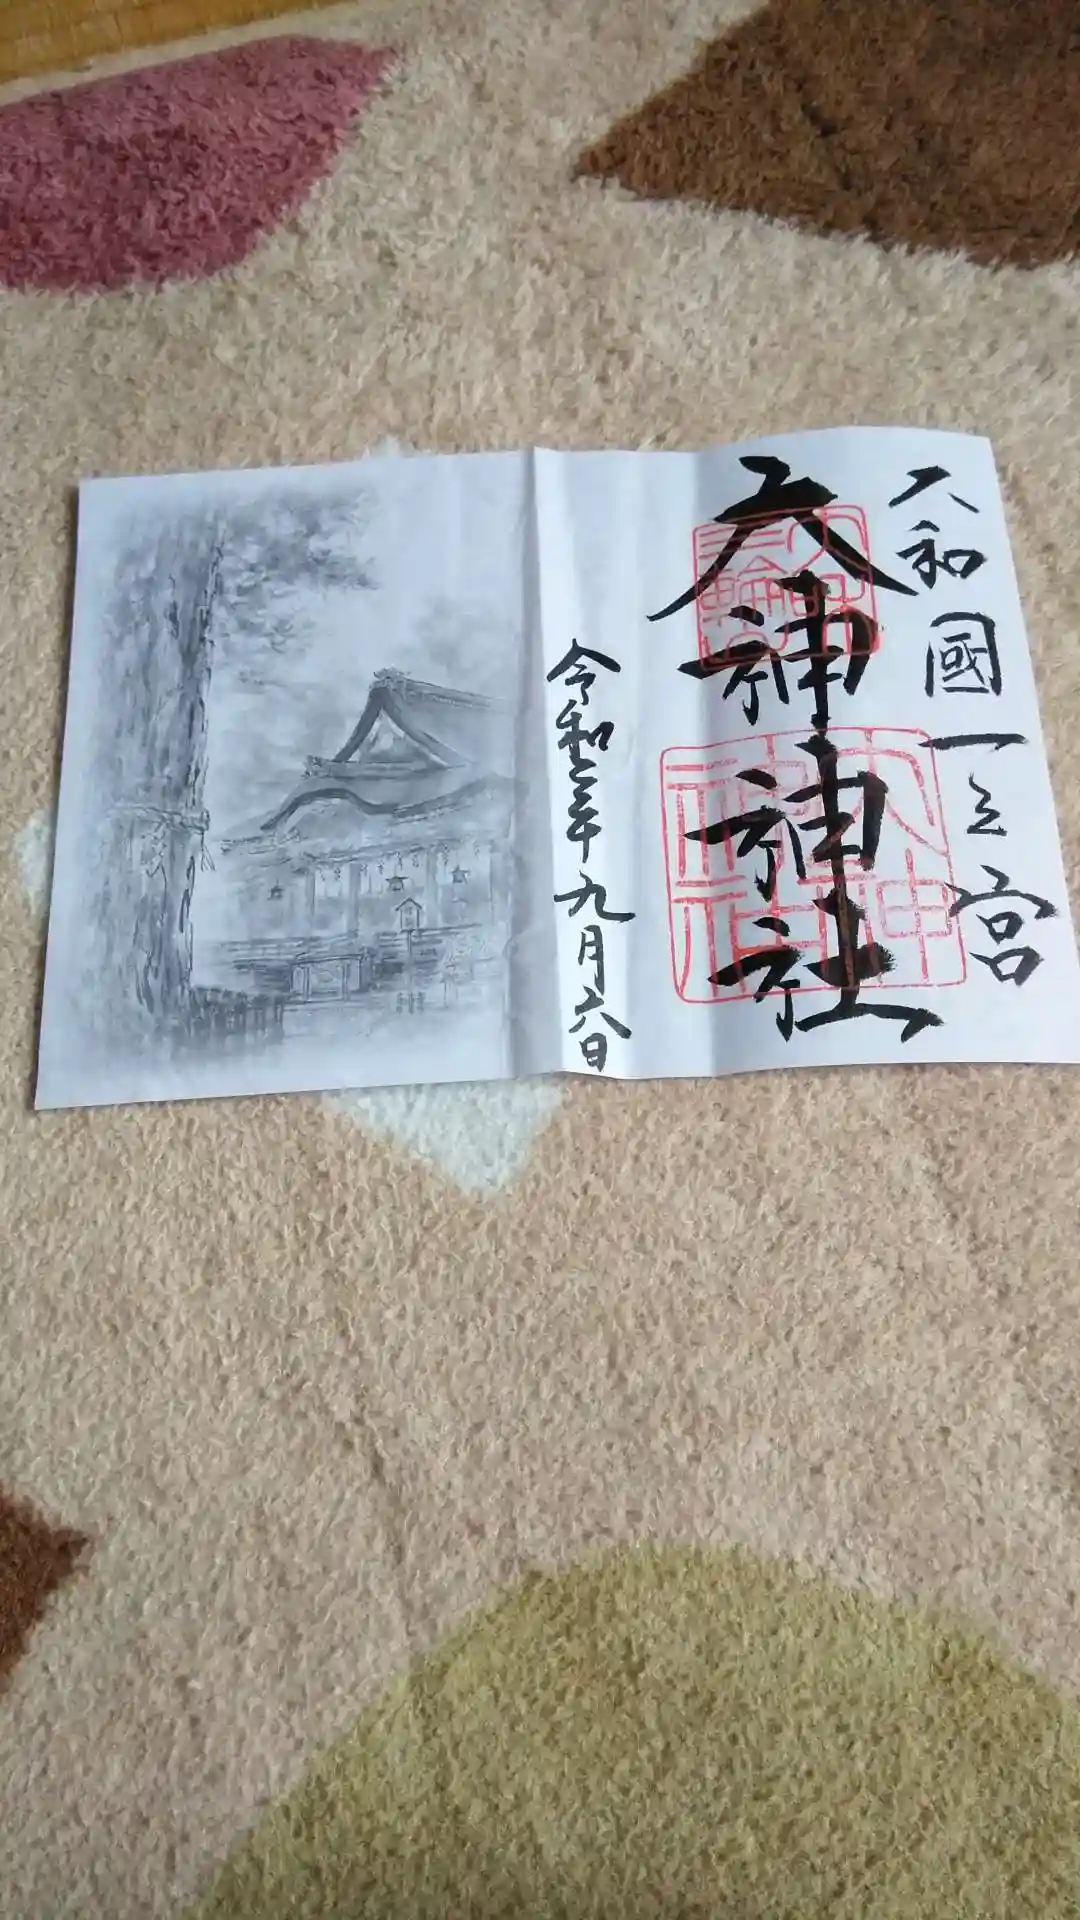 大和國一之宮
大神神社
大神神社
令和三年九月六日